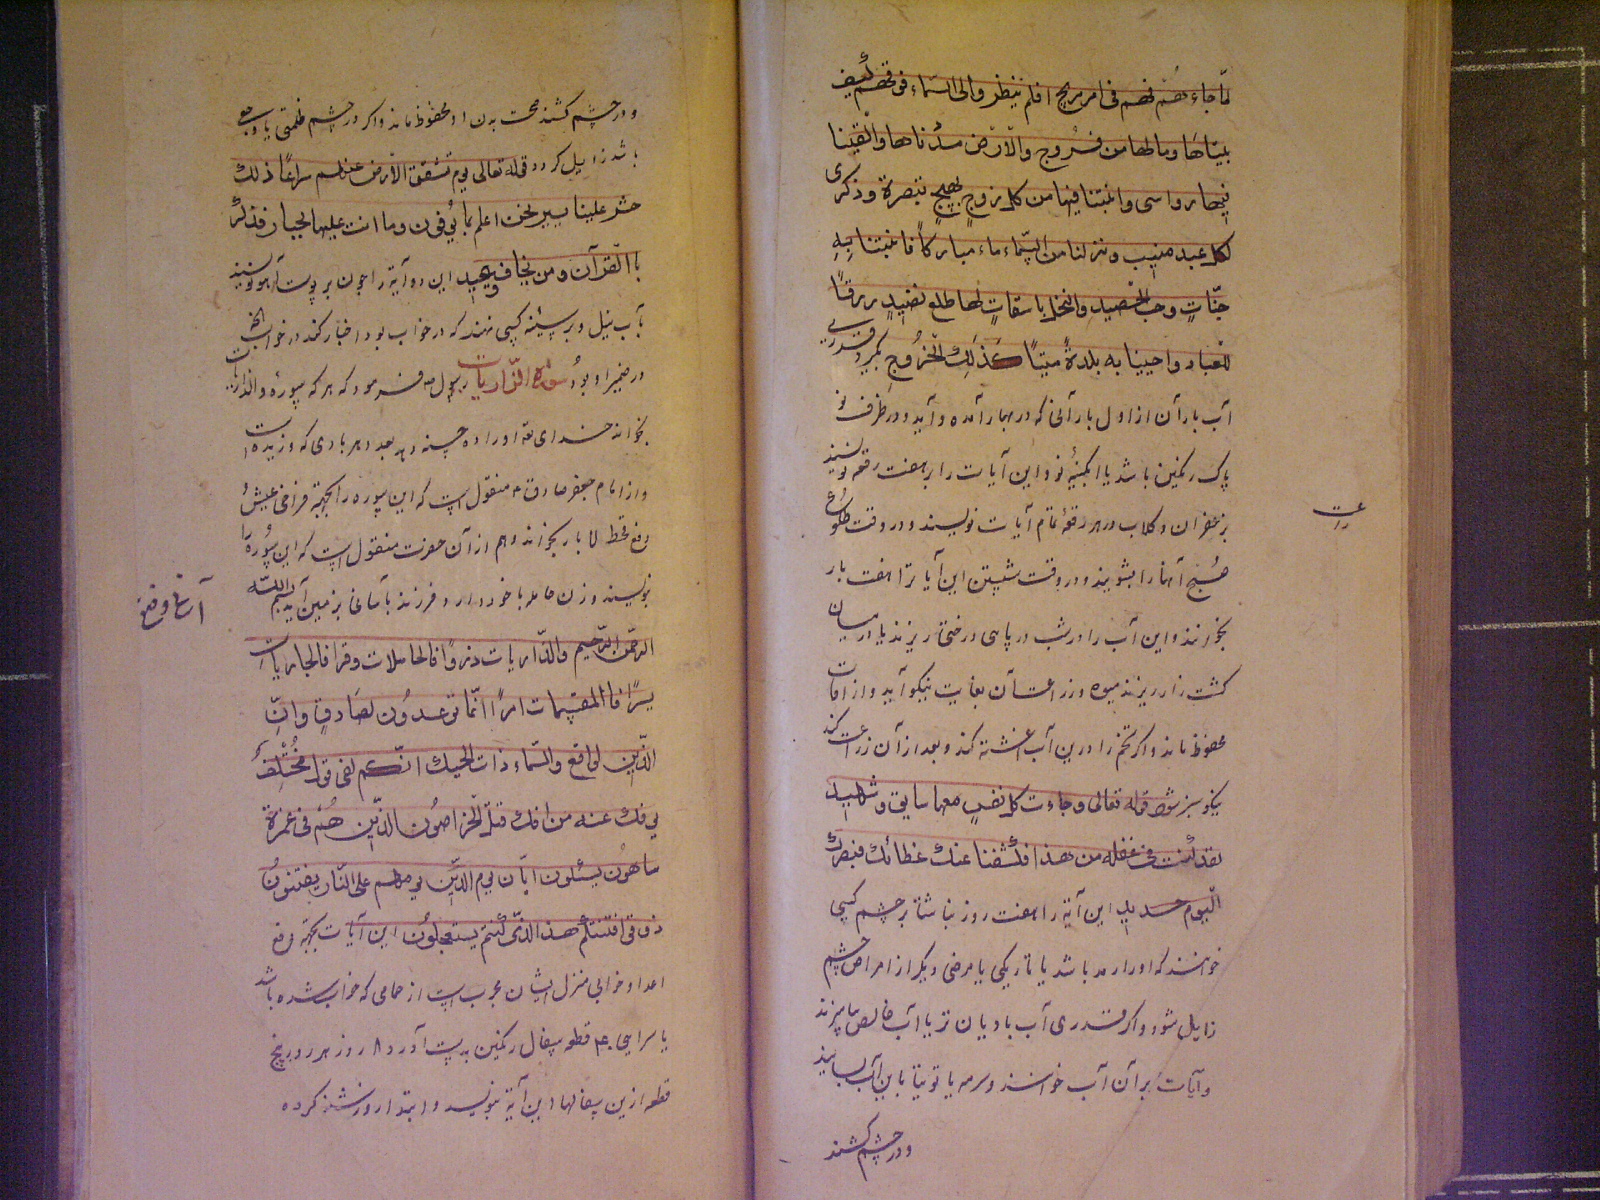 لمّا جاءهم فهم فی امر مریج افلم ینظروا الی السّماء فوقهم کیف
بنیناها وما لها من فروج والارض مددناها والقینا
فیها رواسی وانبتنا فیها من کل زوج بهیج تبصرة وذکری
لکل عبد منیب ونزلنا من السّماء ماء مبارکاً فانبتنا به
جنّات وحب الحصید والنخل باسقات لها طلع نضید رزقاً
للعباد واحیینا به بلدة میتاً کذلک الخروج بگیرد قدری
آب باران از اول بارانی که در بهار آمده و آید و در ظرف نو
پاک رنگین باشد یا آبگینهٔ نو و این آیات را بر هفت رقعه نویسند
بزعفران و گلاب در هر رقعهٔ تمام آیات نویسند و در وقت طلوع
صبح آنها را بشویند و در وقت شستن این آیات را هفت بار
بخوانند و این آب را در شب در پای درختان ریزند یا در میان
کشت زار ریزند میوه و زراعت آن بغایت نیکو آید و از آفات
محفوظ ماند و اگر تخم را درین آب آغشته کند و بعد از آن زراعت کند
نیکو سبز شود قوله تعالی وجاءت کل نفس معها سایق وشهید
لقد کنت فی غفله من هذا فکشفنا عنک غطائک فبصرک
الیوم حدید این آیة را هفت روز ناشتا بر چشم کسی
خوانند که او را رمد باشد یا تاریکی یا مرضی دیگر از امراض چشم
زایل شود و اگر قدری آب بادیان تر یا آب خالص بپزند
و آیات بر آن آب خوانند و سرمه یا توتیا باین آب بسایند
و در چشم کشند
و در چشم کشند صحت بدن او محفوظ ماند و اگر در چشم ظلمتی یا وجعی
باشد زایل گردد قوله تعالی یوم تشقق الارض عنهم سراعاً ذلک
حشر علینا یسیر نحن اعلم بما یقولون وما انت علیهم بجبار فذکر
باالقرآن ومن یخاف وعید این دو آیة را چون بر پوست آهو نویسند
بآب نیل و بر سینه کسی نهند که در خواب بود اخبار کند در خواب آنچه
در ضمیر او بود سورة الذّاریات رسول ص فرمود که هر که سورهٔ والذاریات
بخواند خدای تع او را ده حسنه دهد بعدد هر بادی که وزیده است
و از امام جعفر صادق ع منقول است که این سوره را بجهة فراخی عیش و
رفع قحط بخوانند و هم از آن حضرت منقول است که این سوره را
نویسند و زن حامله با خود دارد فرزند بآسانی بزمین آید بسم اللّه
الرحمن الرحیم والذّاریات ذرواً فالحاملات وقرا فالجاریات
یسراً فاالمقسمات امراً انّما توعدون لصادق وانّ
الدّین لواقع والسّماء ذات الحبک انّکم لفی قول مختلف
یوفک عنه من افک قتل الخراصون الذّین هم فی غمرة
ساهون یسئلون ایّان یوم الدّین یوم هم علی النّار یفتنون
ذوقوا فتنتکم هذا الذّی کنتم به تستعجلون این آیات بجهة دفع
اعدا و خرابی منزل ایشان مجرب است از حمامی که خراب شده باشد
یا سرایی قطعه سفال رنگین بدست آورد و روز هر روز پنج
قطعه ازین سفالها این آیة بنویسد و ابتدا روز شنبه کرده